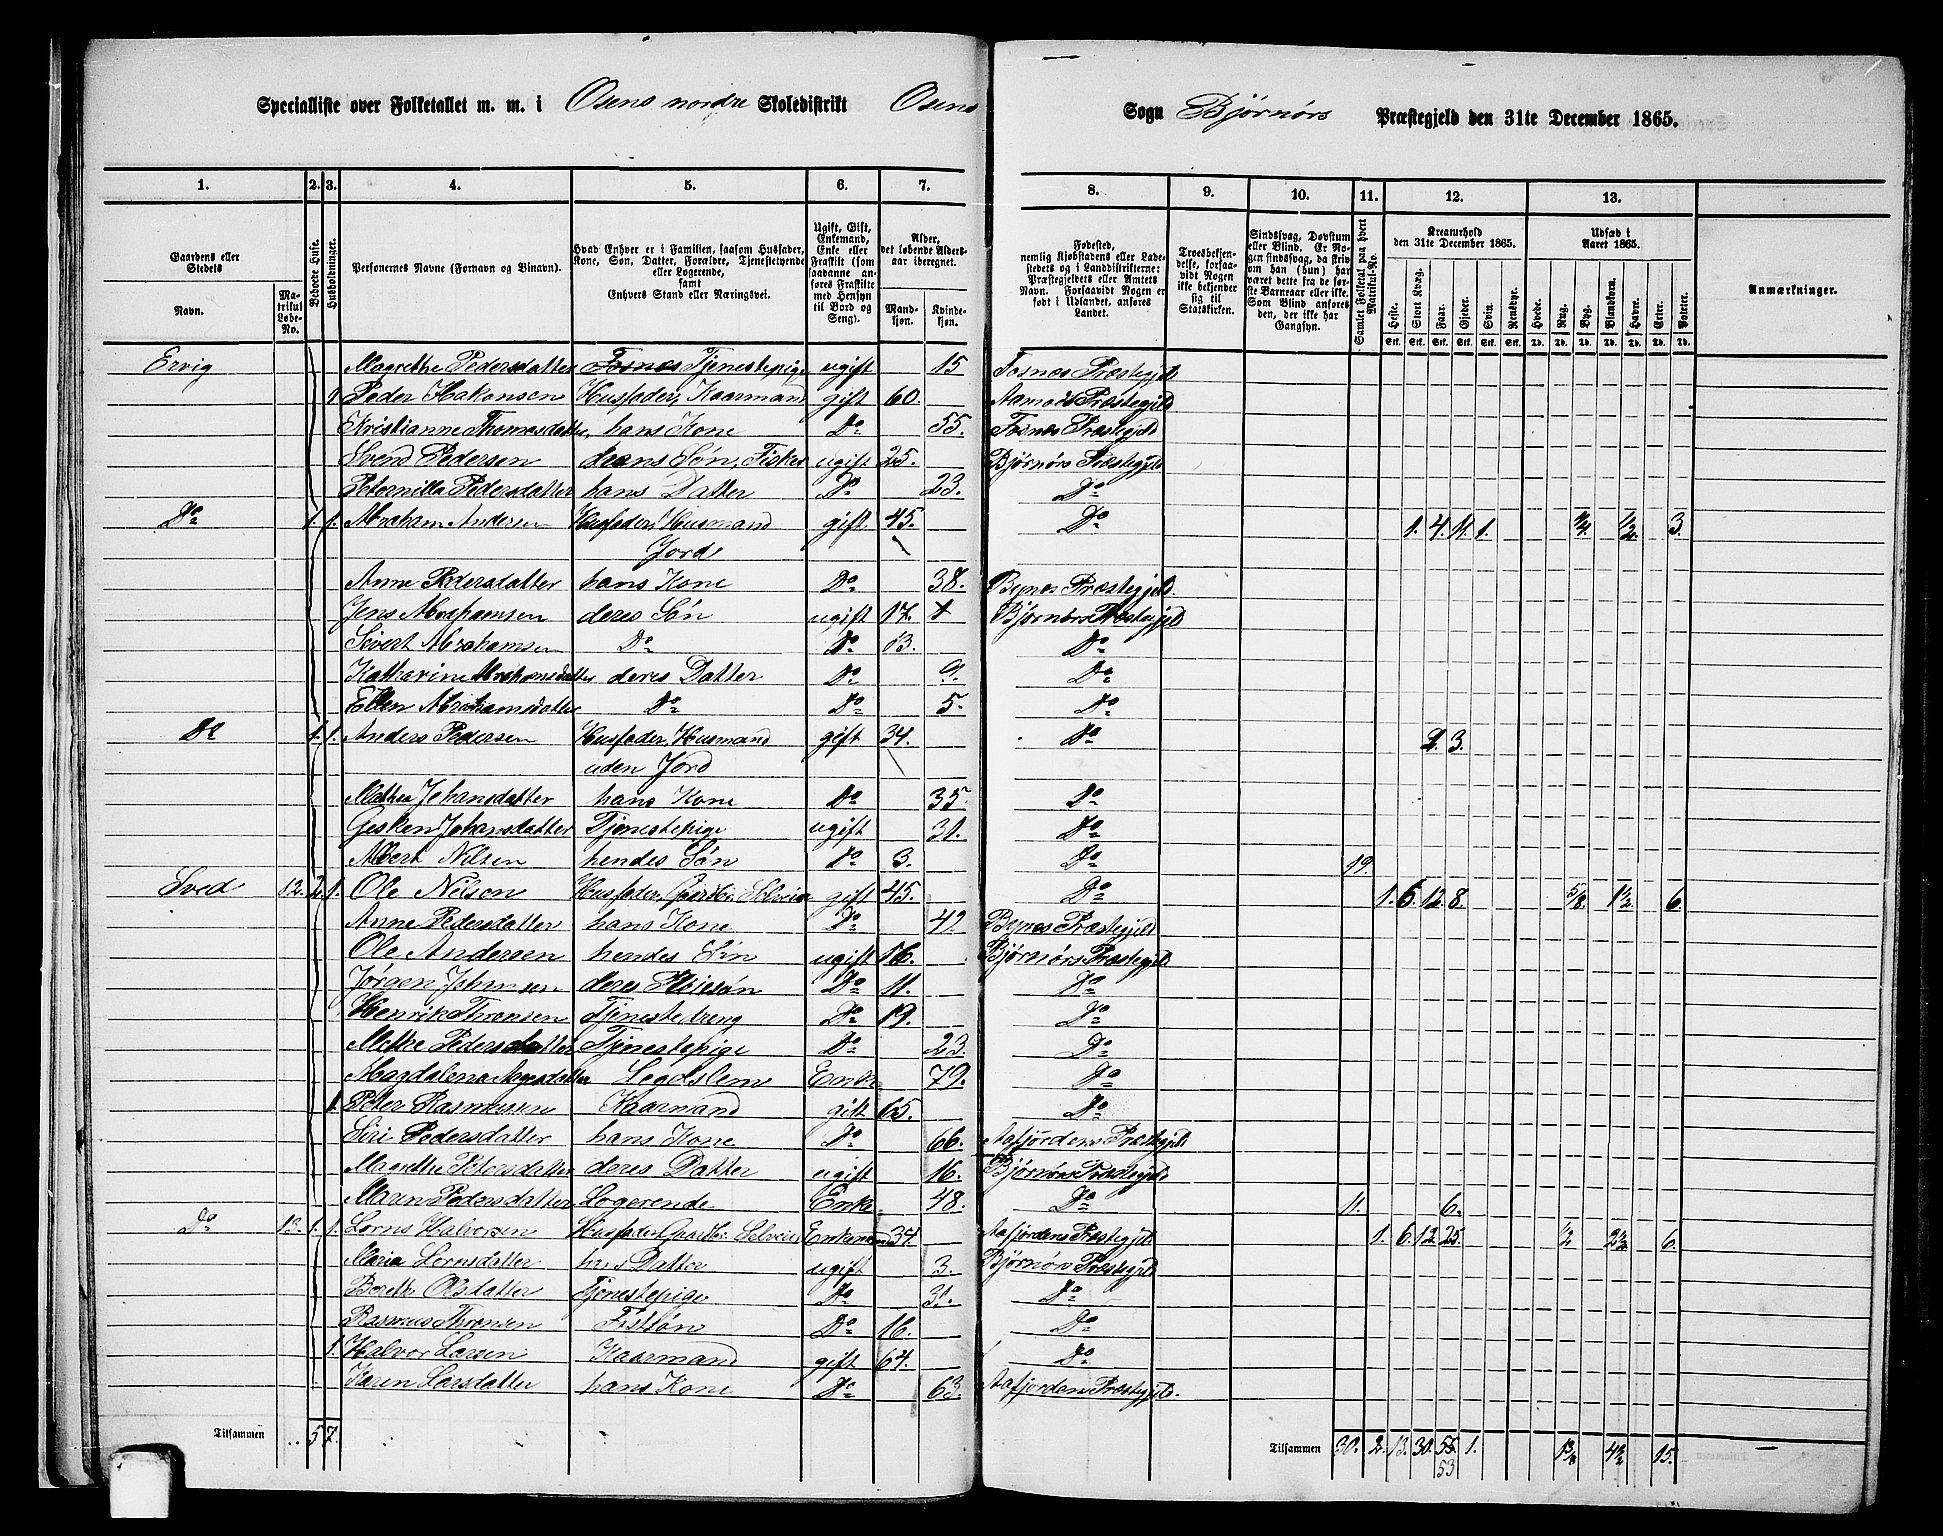 Specialliste over Folketallet m. m. i Osens nordre Skoledistrikt Osens Sogn Bjørnørs Præstegjeld den 31te December 1865.
1. 2. 3. 4. 5. 6. 7. 8. 9. 10. 11. 12. 13.
Gaardens eller Stedets
Navn.
Matrikul Løbe-No.
Beboede Huse.
Husholdninger.
Personernes Navne (Fornavn og Binavn).
Hvad Enhver er i Familien, saasom Husfader, Kone, Søn, Datter, Forældre, Tjenestetyende eller Logerende,
samt
Enhvers Stand eller Næringsvei.
Ugift, Gift, Enkemand, Enke eller Fraskilt (som saadanne anføres Fraskilte med Hensyn til Bord og Seng).
Alder, det løbende Alders-aar iberegnet.
Mandkjøn.
Kvindekjøn.
Fødested,
nemlig Kjøbstadens eller Ladestedets og i Landdistrikterne: Præstegjeldets eller Amtets Navn. Forsaavidt Nogen er født i Udlandet, anføres Landet.
Troesbekjendelse, forsaavidt Nogen ikke bekjender sig til Statskirken.
Sindssvag, Døvstum eller Blind. Er Nogen sindssvag, da skrives om han (hun) har været dette fra de første Barneaar eller ikke. Som Blind anføres den, der ikke har Gangsyn.
Samlet Folketal paa hvert Matrikul-No.
Kreaturhold den 31te December 1865.
Heste. Stort Kvæg. Faar. Gjeder. Svin. Rensdyr.
Stk. Stk. Stk. Stk. Stk. Stk.
Udsæd i Aaret 1865.
Hvede. Rug. Byg. Blandkorn. Havre. Erter. Poteter.
Td. Td. Td. Td. Td. Td. Td.
Anmærkninger.
Ervig Magrethe Pedersdatter Tjenestepige ugift 15 Fosnes Præstegjeld
Peder Hakonsen Husfader, Kaarmand gift 60. Præstegjeld
Kristianne Thomasdatter, hans Kone Do 55. Fosnes Præstegjeld
Svend Pedersen deres Søn, Fisker ugift 25. Bjørnørs Præstegjeld
Peternilla Pedersdatter hans Datter Do 23. Do
Do 1. 1. Abraham Andersen Husfader, Husmand gift 45. Do 1. 4. 11. 1. 1/2 3.
Jord
Anne Pedersdatter hans Kone Do 38. Bynes Præstegjeld.
Jens Abrahamsen deres Søn ugift 17. Bjørnørs Præstegjeld
Sivert Abrahamsen Do Do 13. Do
Katharine Abrahamsdatter deres Datter Do 9. Do
Ellen Abrahamsdatter Do Do 5. Do
Do 1. 1. Anders Pedersen Husfader, Husmand gift 34. Do 2. 3.
uden Jord
Mathea Johansdatter hans Kone Do 35. Do
Gesken Johansdatter Tjenestepige ugift 31. Do
Albert Nilsen hendes Søn Do 3. Do 19.
Sved 12. 2. 1. Ole Nilson Husfader, Gaardbr. Selveier gift 45. Do 1. 6. 12. 8. 5/8 1 1/2 6.
Anne Pedersdatter hans Kone Do 49 Bynes Præstegjeld
Ole Andersen hendes Søn ugift 16. Bjørnørs Præstegjeld
Jørgen Johansen deres Pleiesøn Do 11. Do
Henrik Thronsen Tjenestedreng Do 19. Do
Mette Pedersdatter Tjenestepige Do 23. Do
Magdalena Aagesdatter Legdslem Enke 79. Do
1. Peter Rasmussen Kaarmand gift 65. Do
Siri Pedersdatter hans Kone Do 66. Aafjordens Præstegjeld
Magrethe Petersdatter deres Datter ugift 16. Bjørnørs Præstegjeld
Maren Pedersdatter Logerende Enke 48. Do 11. 6.
Do 13. 1. 1. Lorns Halvorsen Husfader Gaardbr. Selveier Enkemand 34. Aafjordens Præstegjeld 1. 6. 12. 25. 1/2 2 1/2 6.
Maria Lornsdatter hans Datter ugift 3. Bjørnørs Præstegjeld
Bereth Olsdatter Tjenestepige Do 31. Do
Rasmus Thronsen Do 16. Do
1. Halvor Larsen Kaarmand gift 64. Do
Karen Larsdatter hans Kone Do 63. Aafjordens Præstegjeld.
Tilsammen 5 7. Tilsammen 30. 2. 13. 30. 55 1. 1 3/8 4 1/2 15.
53